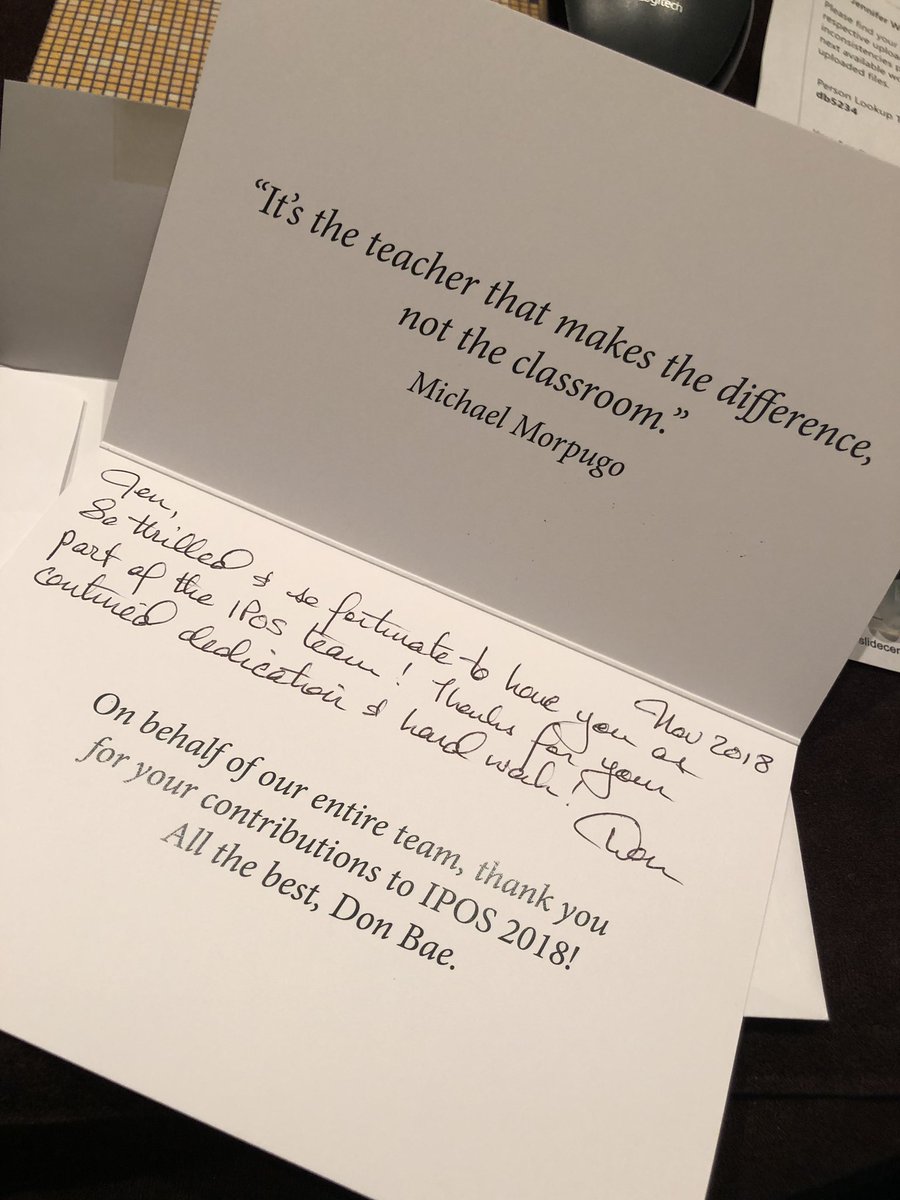 Logitech
Jennifer W
Please find your
respective uploa
inconsistencies p
next available w
uploaded files.
Person Lookup T
db5234
“It’s the teacher that makes the difference,
not the classroom.”
Michael Morpugo
slidecen
Nov 2018
Jen,
So thrilled & so fortunate to have you as
part of the IPOS team! Thanks for your
continued dedication & hard work!
Don
On behalf of our entire team, thank you
for your contributions to IPOS 2018!
All the best, Don Bae.